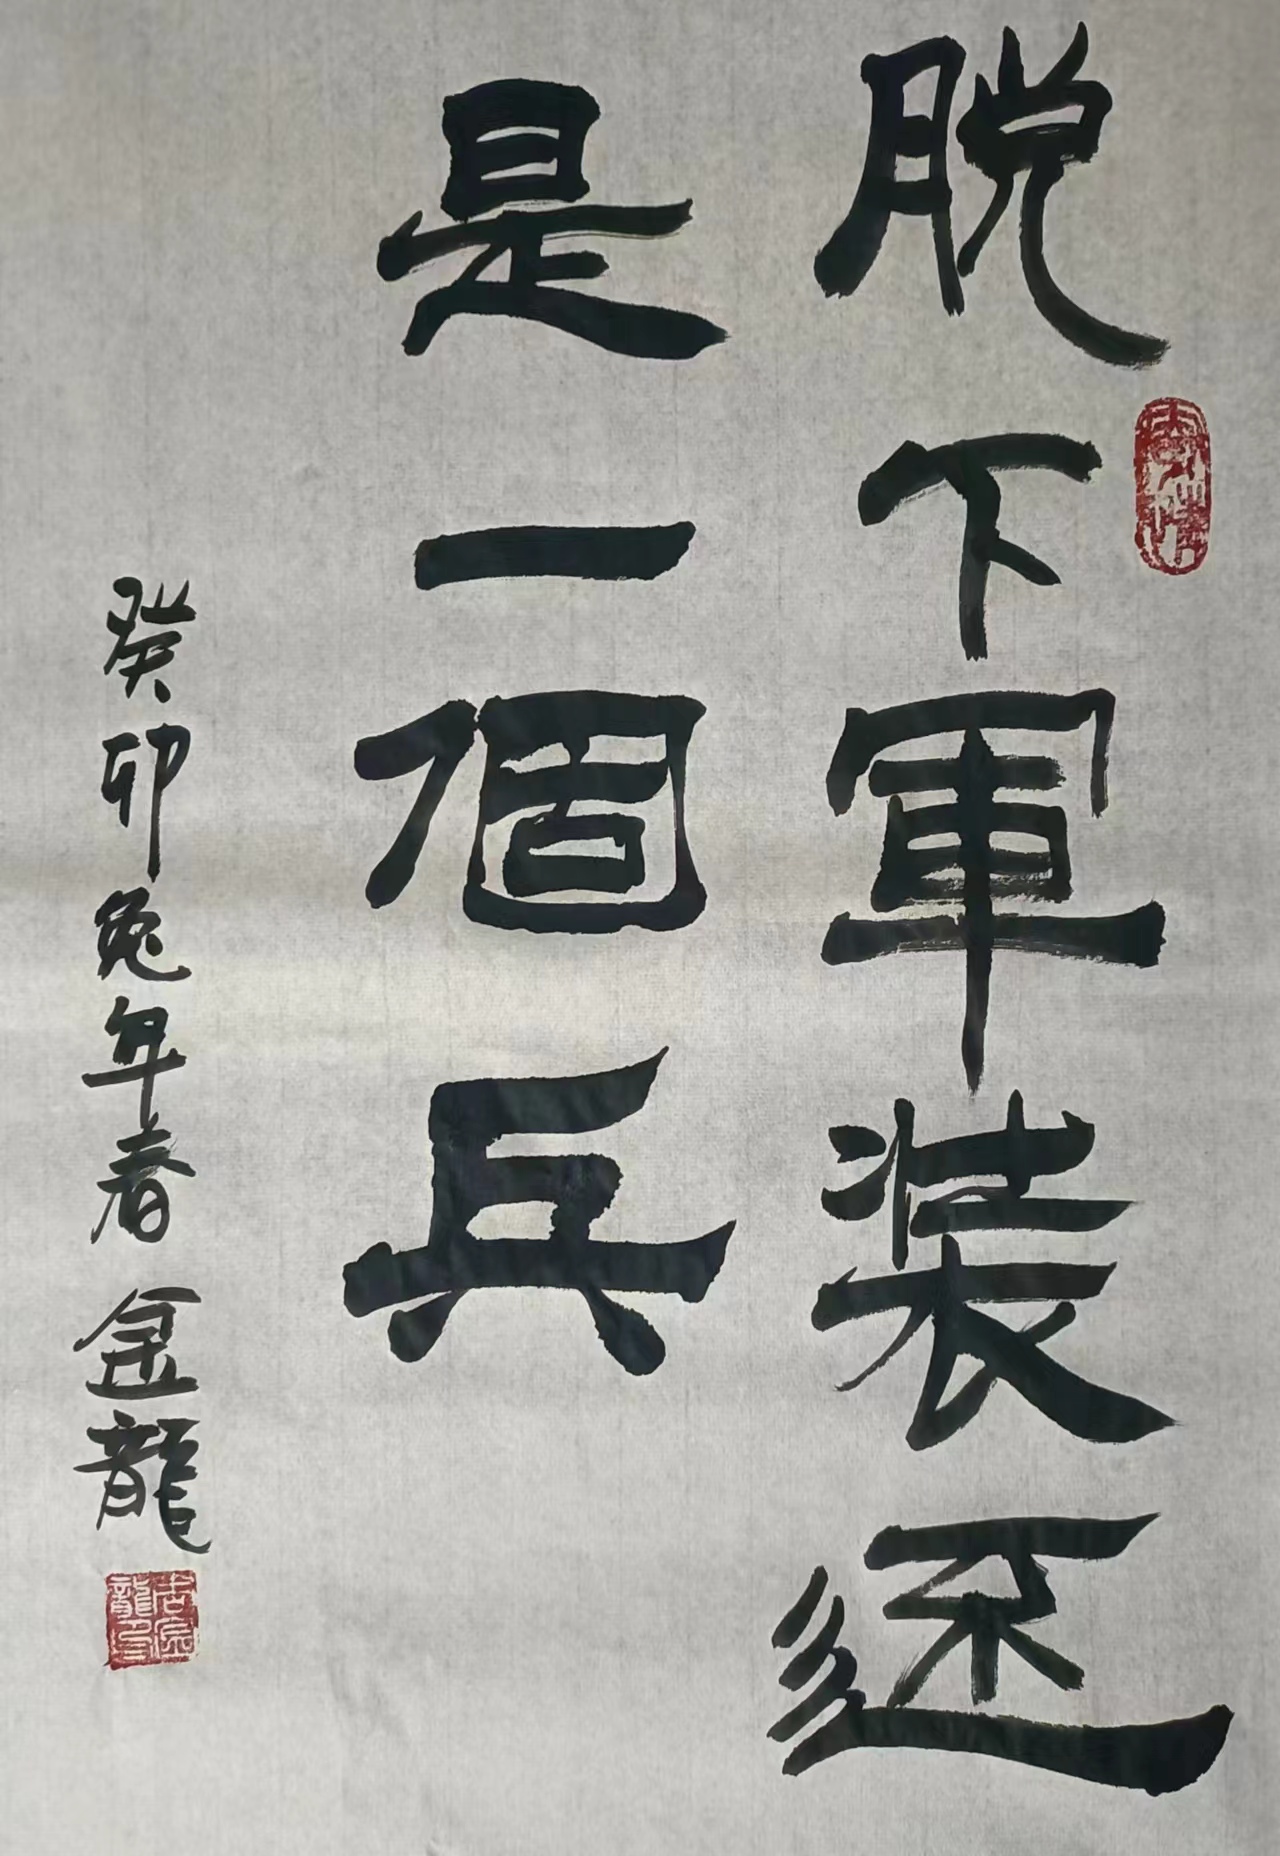 脱下軍装还
是一個兵
癸卯兔年春 金龍